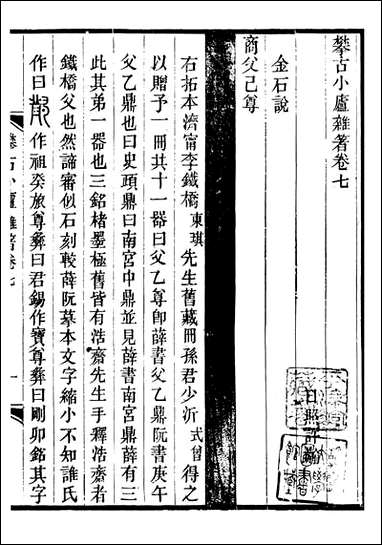 攀古小廬雜著卷七
金石說
商父己尊
右拓本濟甯李鐵橋東琪先生舊藏冊孫君少沂式曾得之
以贈予一冊共十一器曰父乙尊卽薛書父乙鼎阮書庚午
父乙鼎也曰史頙鼎曰南宮中鼎並見薛書南宮鼎薛有三
此其弟一器也三銘楮墨極舊皆有浩齋先生手釋浩齋者
鐵橋父也然諦審似石刻較薛阮摹本文字縮小不知誰氏
作曰 作祖癸旅尊彝曰君錫作寶尊彝曰剛卯銘其字
攀古小廬雜著卷七
一